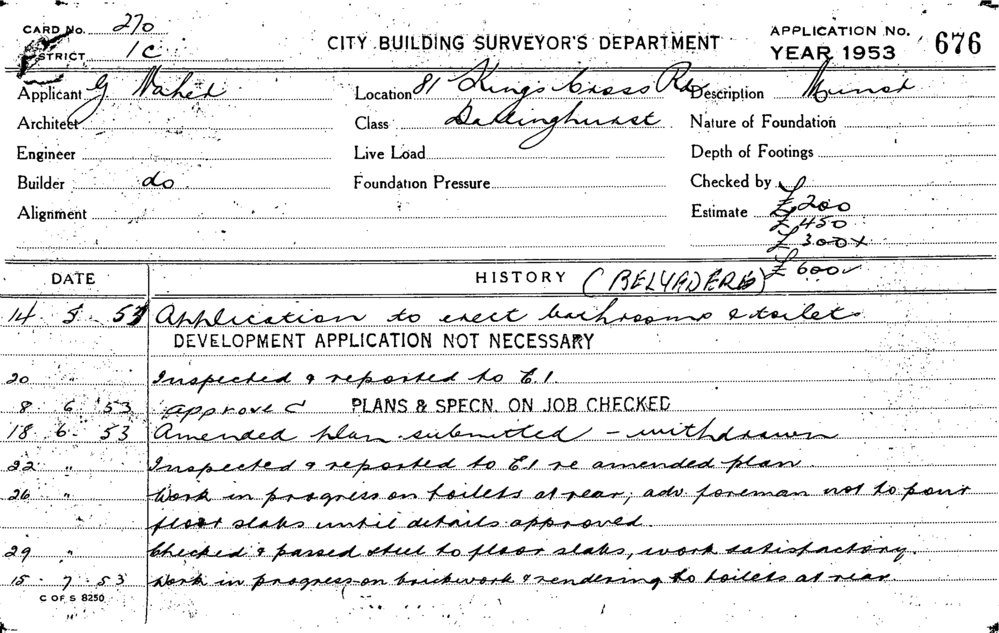 CARD No. 270
DISTRICT 1C
CITY BUILDING SURVEYOR'S DEPARTMENT
APPLICATION No. 676
YEAR 1953
Applicant G
Location 81 Kings Cross Rd
Description
Architect
Class Darlinghurst
Nature of Foundation
Engineer
Live Load
Depth of Footings
Builder do
Foundation Pressure
Checked by
Alignment
Estimate £200
£450
£300 x
£600
DATE HISTORY (BELVADERE)
14 5 53 Application to erect bathrooms & toilets
DEVELOPMENT APPLICATION NOT NECESSARY
20 " Inspected & reported to E.I.
8 6 53 Approved PLANS & SPECN. ON JOB CHECKED
18 6 53 Amended plan submitted – withdrawn
22 " Inspected & reported to E.I re amended plan
26 " Work in progress on toilets at rear; adv. foreman not to pour
floor slabs until details approved.
29 " Checked & passed steel to floor slabs, work satisfactory.
15 7 53 Work in progress on brickwork & rendering to toilets at rear
C OF S 8250